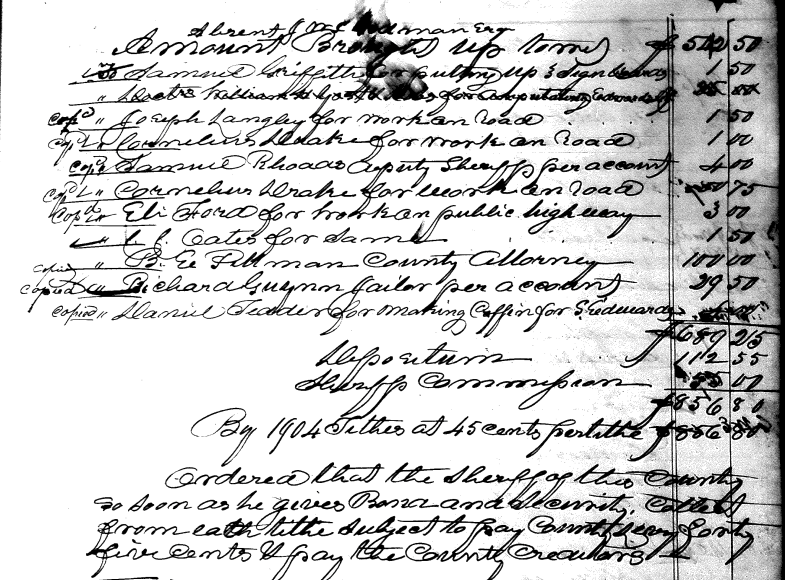 Absent J. W. Woodman Esq
Amount Brought up to $ 512 50
To Samuel Griffith for putting up 3 sign boards 1 50
" Doctr William for amputating Edwards 25 00
Copd " Joseph Langley for work on road 1 50
Copd " Cornelius Drake for work on road 1 00
Copd " Samuel Rhoads deputy Sheriff per account 4 00
Copd " Cornelius Drake for work on road 75
Copd " Eli Ford for work on public high way 3 00
" Oates for same 1 50
copied " B. E. Pittman County Attorney 100 00
copied " Richard Gwynn Jailor per account 29 50
copied " Daniel Teader for making Coffin for S. Edwards
$ 689 25
Depositum 112 55
Sheriffs Commission 55 00
$ 856 80
By 1904 Tithes at 45 cents per tithe $ 856 80
Ordered that the Sheriff of this County
so soon as he gives Bond and Security, Collect
from each tithe subject to pay County Levy forty
five cents & pay the County Creditors